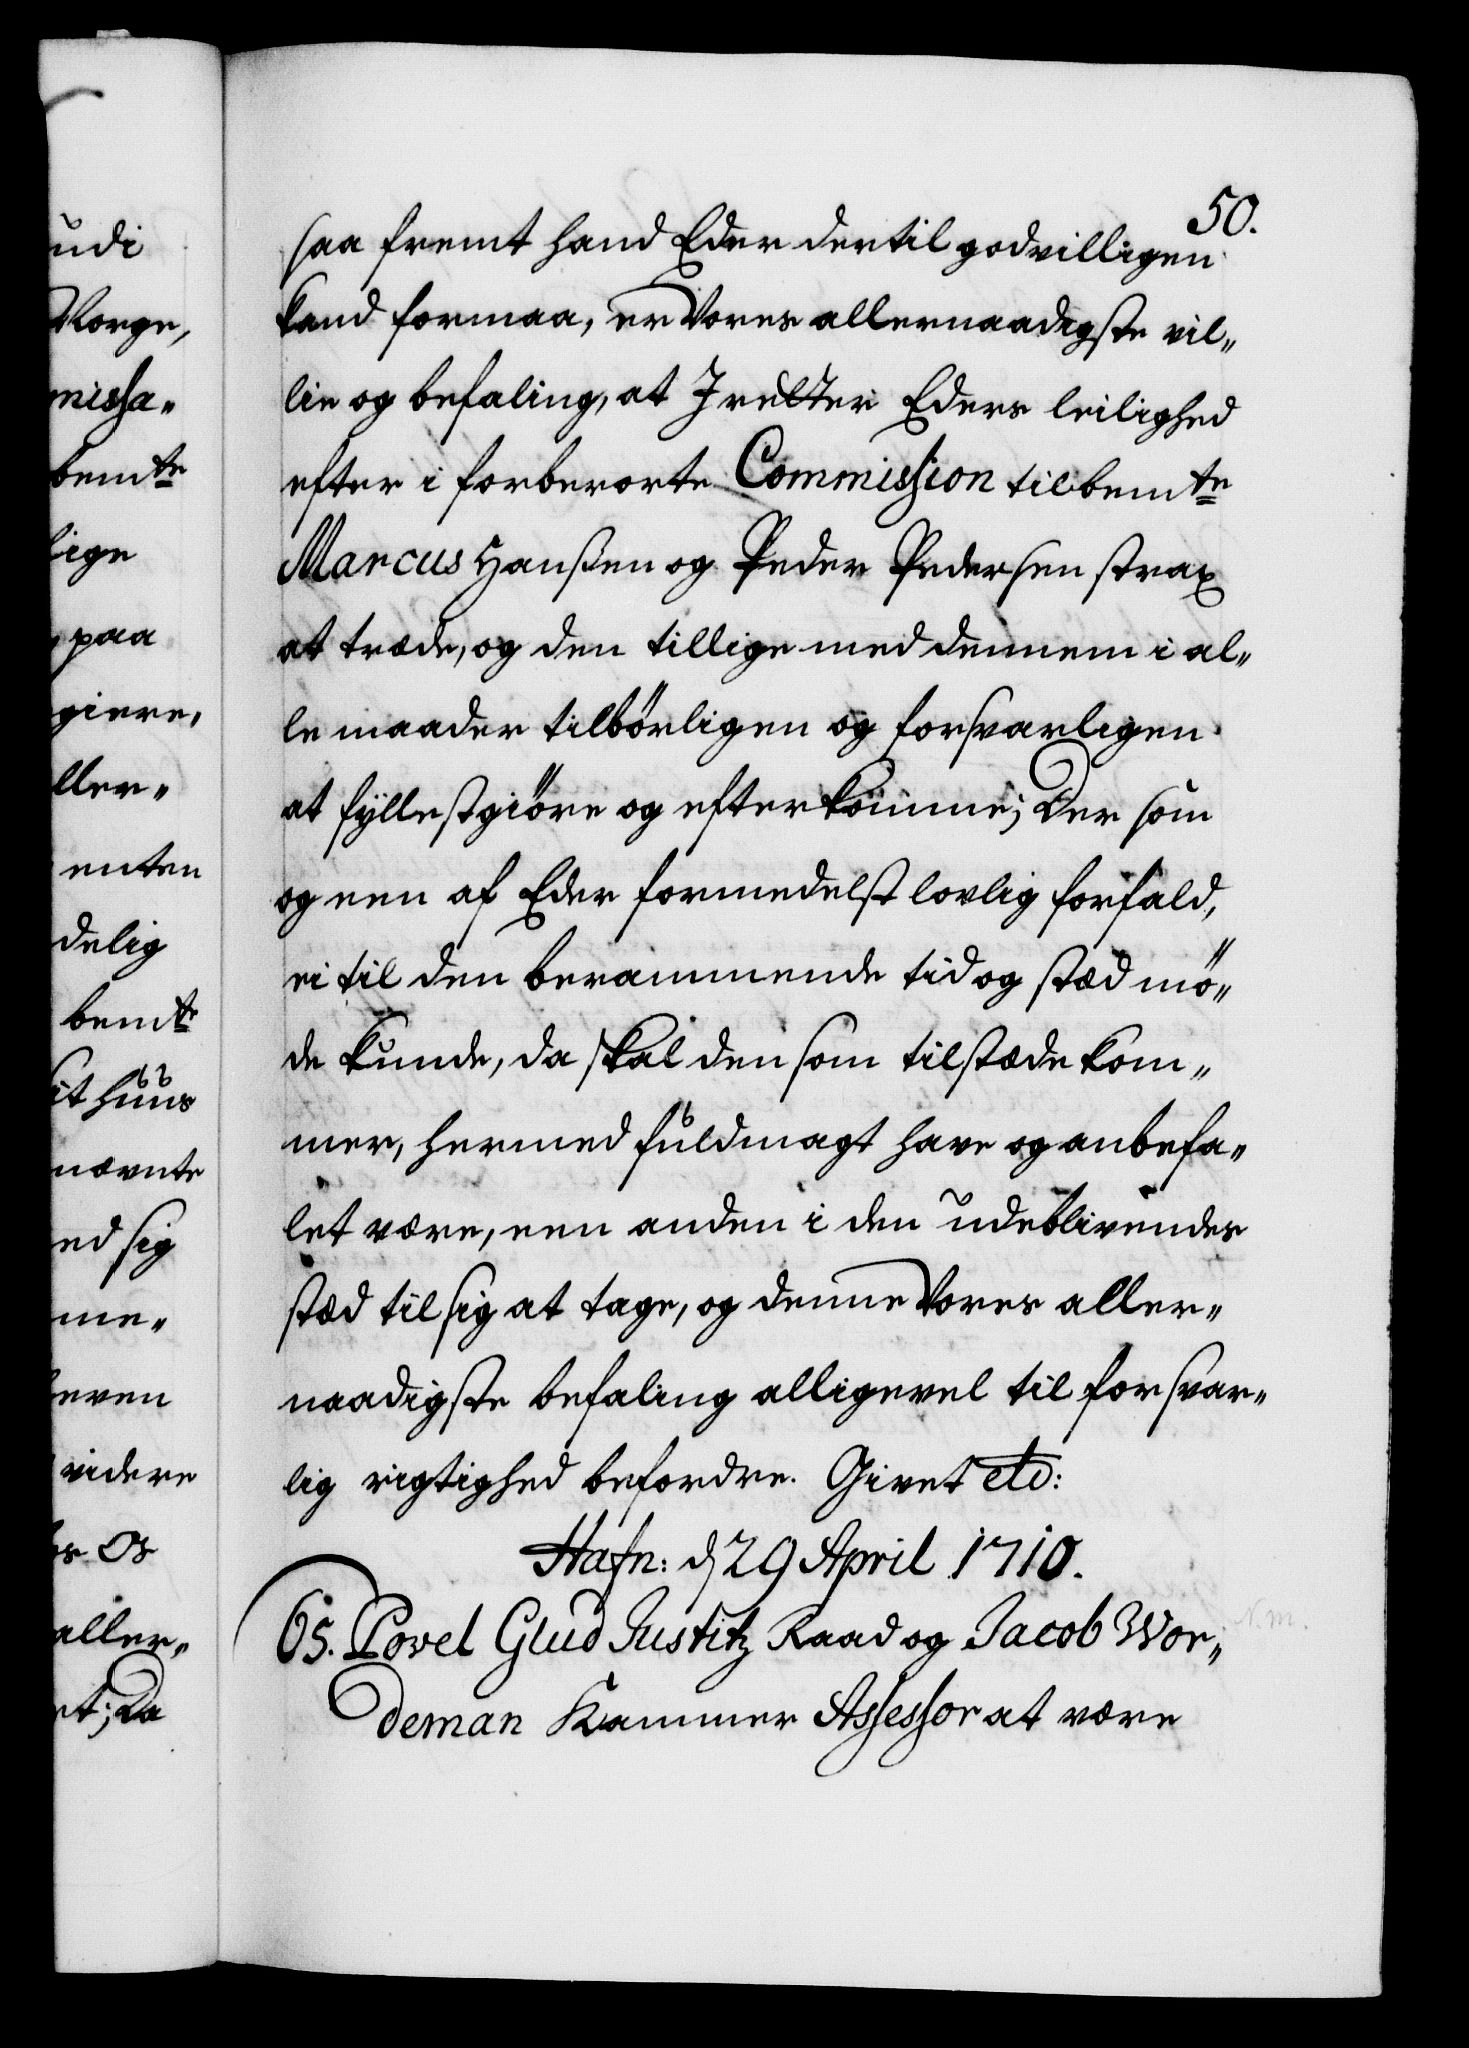 50.
saa fremt hand Eder dertil godvilligen
kand formaa, er Vores allernaadigste vil„
lie og befaling, at I retter Eders leilighed
efter i forberørte Commission til bemte
Marcus Hanßen og Peder Pedersen strax
at træde, og den tillige med dennem i al„
le maader tilbörligen og forsvarligen
at fyllestgiöre og efterkomme; Der som
og een af Eder formedelst lovlig forfald,
ei til den berammende tid og stæd mö„
de kunde, da skal den som tilstæde kom„
mer, hermed fuldmagt have og anbefa„
let være, een anden i den udeblivendes
stæd til sig at tage, og denne Vores aller„
naadigste befaling alligevel til forsvar„
lig rigtighed befordre. Givet etc:
Hafn: d 29 April 1710.
65. Povel Glud Justitz Raad og Jacob Wor„
deman Kammer Assessor at være
N.m.
udi
Norge,
missa„
bemte
lige
paa
giere,
ller„
enten
delig
bemte
it huus
nævnte
ed sig
me„
even
videre
Os
aller„
et; Da